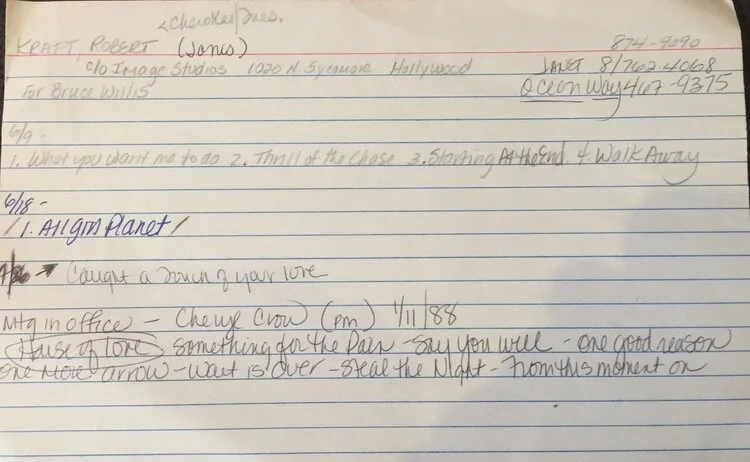 Cherokee/Jones.
KRAFT, ROBERT (Janis) 874-9090
c/o Image Studios 1020 N Sycamore Hollywood JANET 8/762-4068
For Bruce Willis Ocean Way 467-9375
6/9 -
1. What you want me to do 2. Thrill of the Chase 3. Starting At the End 4. Walk Away
6/18 -
/1. All gm Planet/
7/26 → Caught a Touch of your love
Mtg in office - Chewe Crow (pm) 1/11/88
House of love Something for the Pain - Say you will - one good reason
One More arrow - Wait is Over - Steal the Night - From this moment on